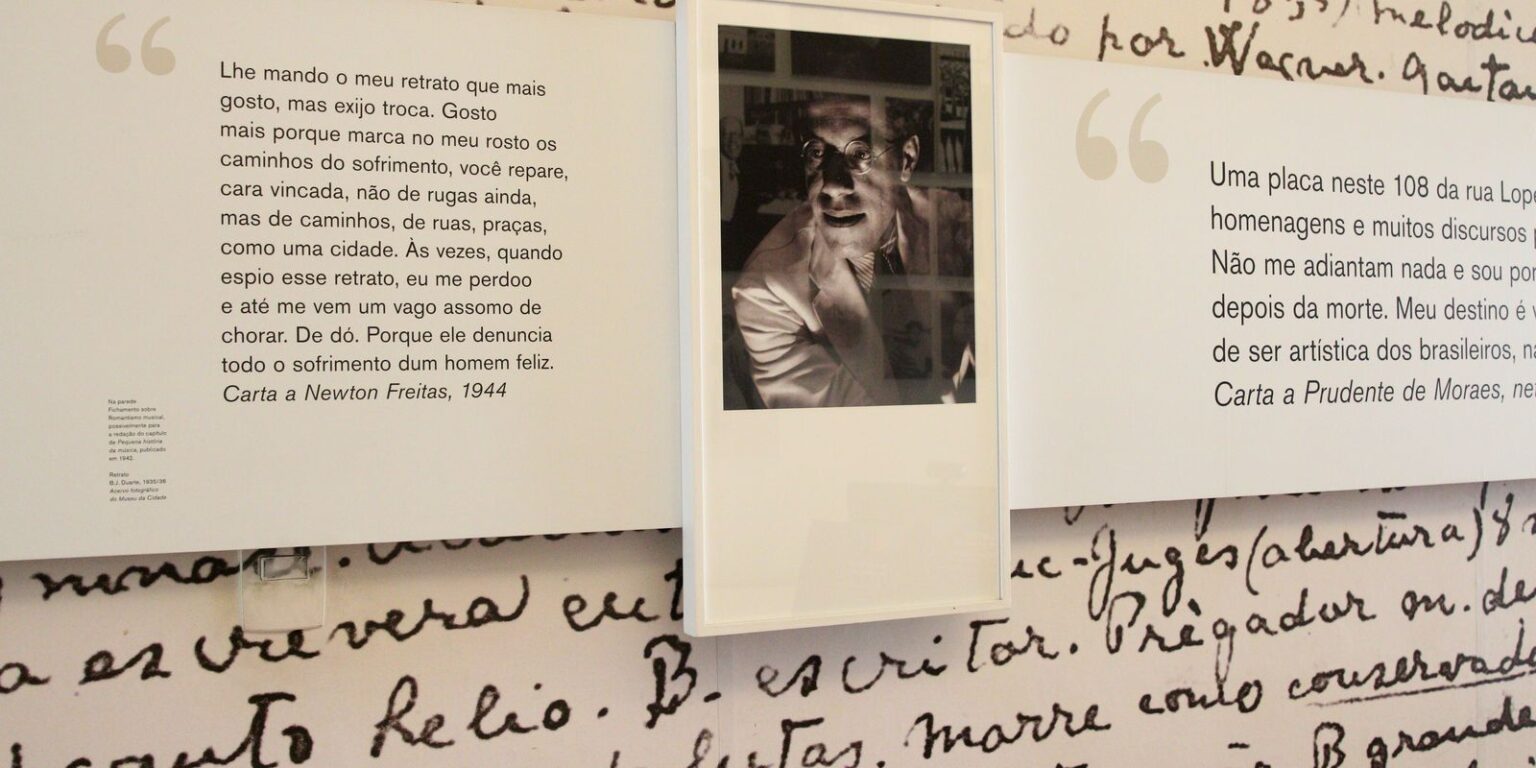 do por Wagner. Gaeta
Lhe mando o meu retrato que mais
gosto, mas exijo troca. Gosto
mais porque marca no meu rosto os
caminhos do sofrimento, você repare,
cara vincada, não de rugas ainda,
mas de caminhos, de ruas, praças,
como uma cidade. Às vezes, quando
espio esse retrato, eu me perdoo
e até me vem um vago assomo de
chorar. De dó. Porque ele denuncia
todo o sofrimento dum homem feliz.
Carta a Newton Freitas, 1944
Na parede
Fichamento sobre
Romantismo musical,
possivelmente para
a redação do capítulo
de Pequena história
da música, publicado
em 1942.
Retrato
B.J. Duarte, 1935/38
Acervo fotográfico
do Museu da Cidade
Uma placa neste 108 da rua Lope
homenagens e muitos discursos
Não me adiantam nada e sou por
depois da morte. Meu destino é
de ser artística dos brasileiros,
Carta a Prudente de Moraes, ne
uc-Juges (abertura)
a escrevera
helio. B. escritor. Prègador m. de
marre como conservado
B grande